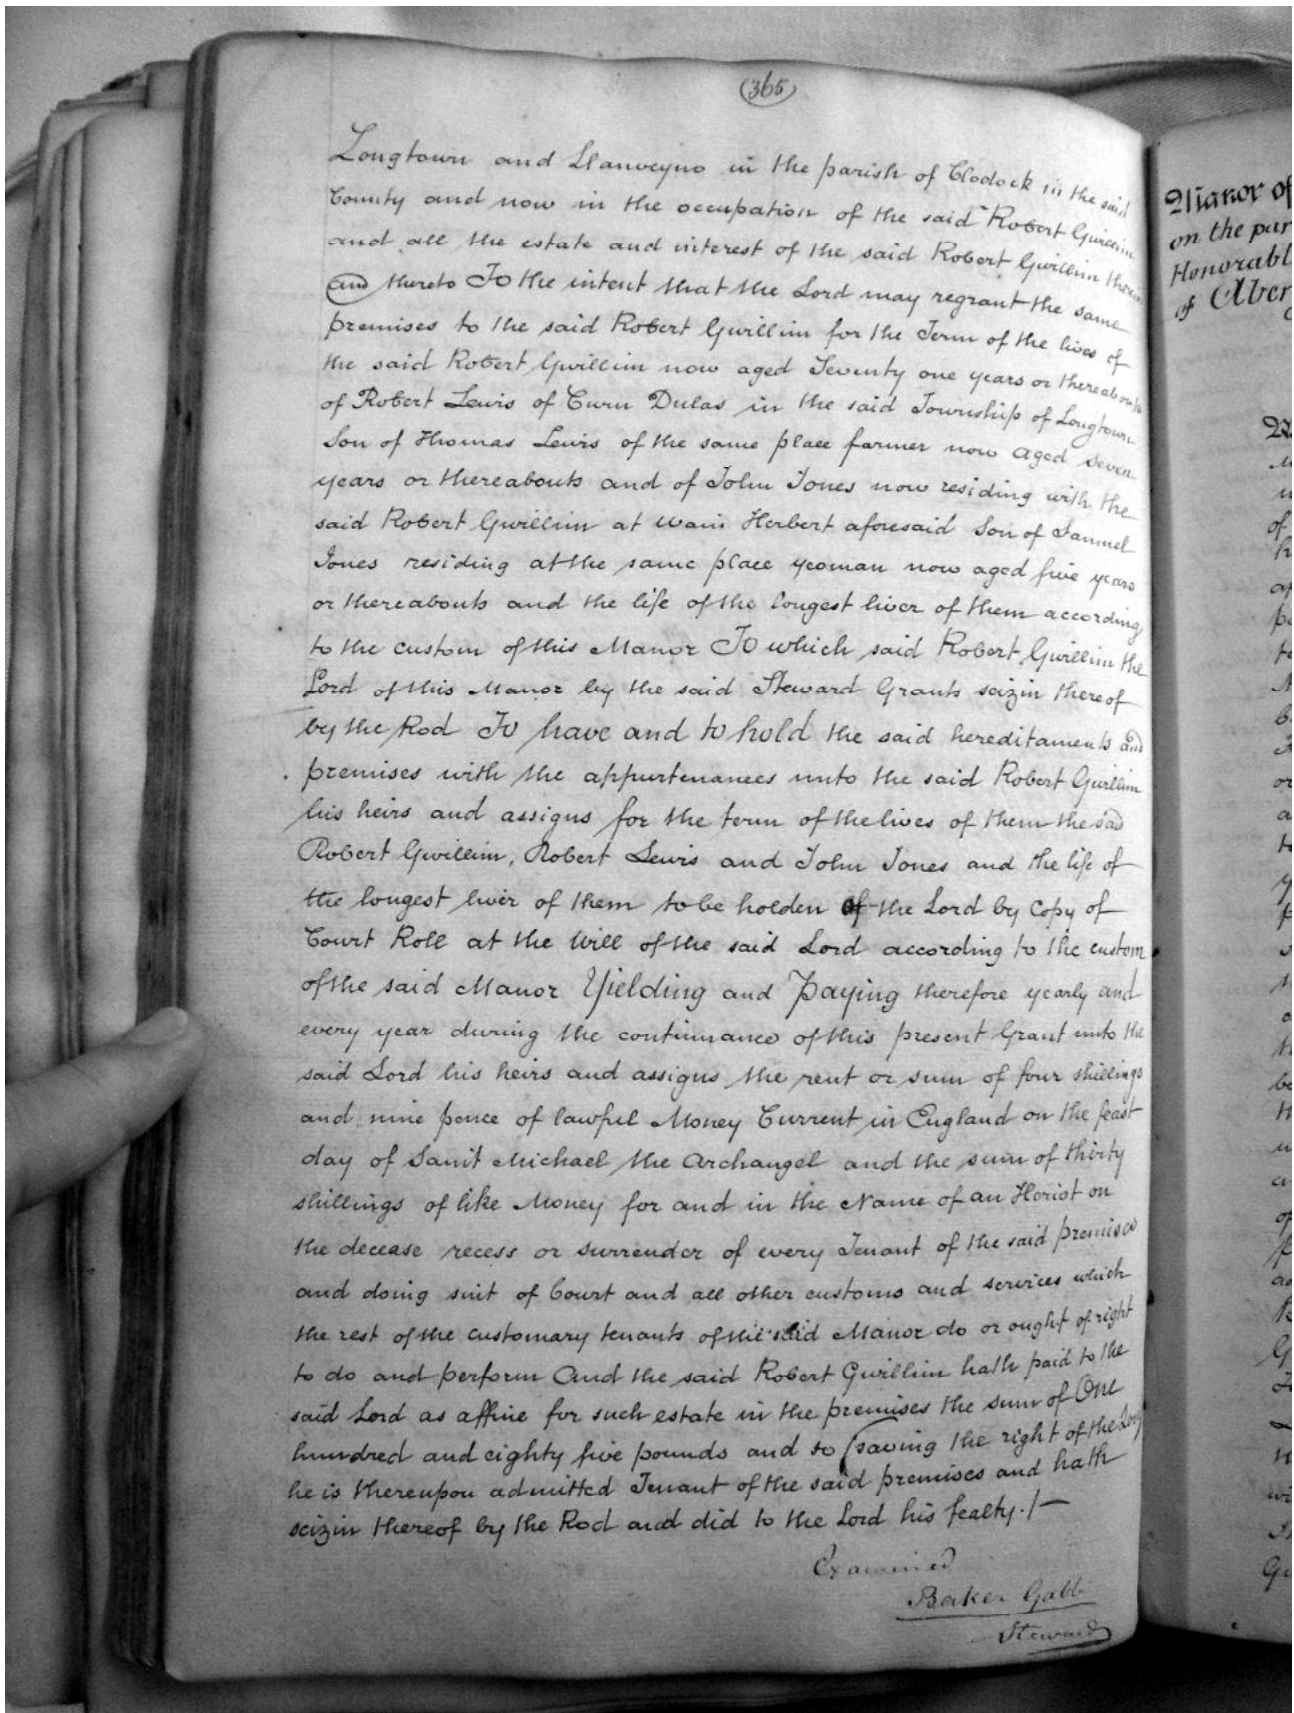 365
Longtown and Llanveyno in the parish of Clodock in the said
County and now in the occupation of the said Robert Gwillim
and all the estate and interest of the said Robert Gwillim therein
and thereto To the intent that the Lord may regrant the same
premises to the said Robert Gwillim for the Term of the lives of
the said Robert Gwillim now aged Seventy one years or thereabouts
of Robert Lewis of Cwm Dulas in the said Township of Longtown
Son of Thomas Lewis of the same place farmer now aged seven
years or thereabouts and of John Jones now residing with the
said Robert Gwillim at Wain Herbert aforesaid Son of Samuel
Jones residing at the same place yeoman now aged five years
or thereabouts and the life of the longest liver of them according
to the custom of this Manor To which said Robert Gwillim the
Lord of this Manor by the said Steward Grants seizin thereof
by the Rod To have and to hold the said hereditaments and
premises with the appurtenances unto the said Robert Gwillim
his heirs and assigns for the term of the lives of them the sad
Robert Gwillim, Robert Lewis and John Jones and the life of
the longest liver of them to be holden of the Lord by Copy of
Court Roll at the Will of the said Lord according to the custom
of the said Manor Yielding and Paying therefore yearly and
every year during the continuance of this present Grant unto the
said Lord his heirs and assigns the rent or sum of four shillings
and nine pence of lawful Money Current in England on the feast
day of Saint Michael the Archangel and the sum of thirty
shillings of like Money for and in the Name of an Heriot on
the decease recess or surrender of every Tenant of the said premises
and doing suit of Court and all other customs and services which
the rest of the customary tenants of the said Manor do or ought of right
to do and perform And the said Robert Gwillim hath paid to the
said Lord as affine for such estate in the premises the sum of One
hundred and eighty five pounds and so (saving the right of the Lord
he is thereupon admitted Tenant of the said premises and hath
seizin thereof by the Rod and did to the Lord his fealty./—
Examined
Baker Gabb
Steward
Manor of
on the par
Honorabl
of Aber